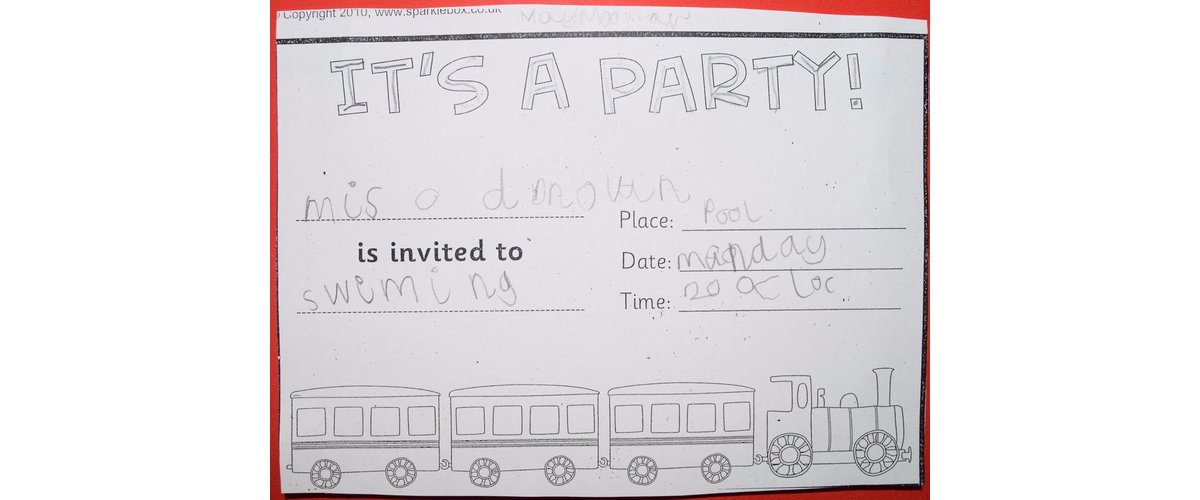 Copyright 2010, www.sparklebox.co.uk
IT'S A PARTY!
mis o donovan
is invited to
swiming
Place: Pool
Date: manday
Time: 20 oc loc